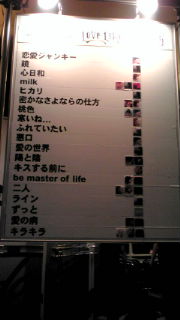 恋愛ジャンキー
鏡
心日和
milk
ヒカリ
密かなさよならの仕方
桃色
寒いね…
ふれていたい
悪口
愛の世界
陽と陰
キスする前に
be master of life
二人
ライン
ずっと
愛の病
キラキラ